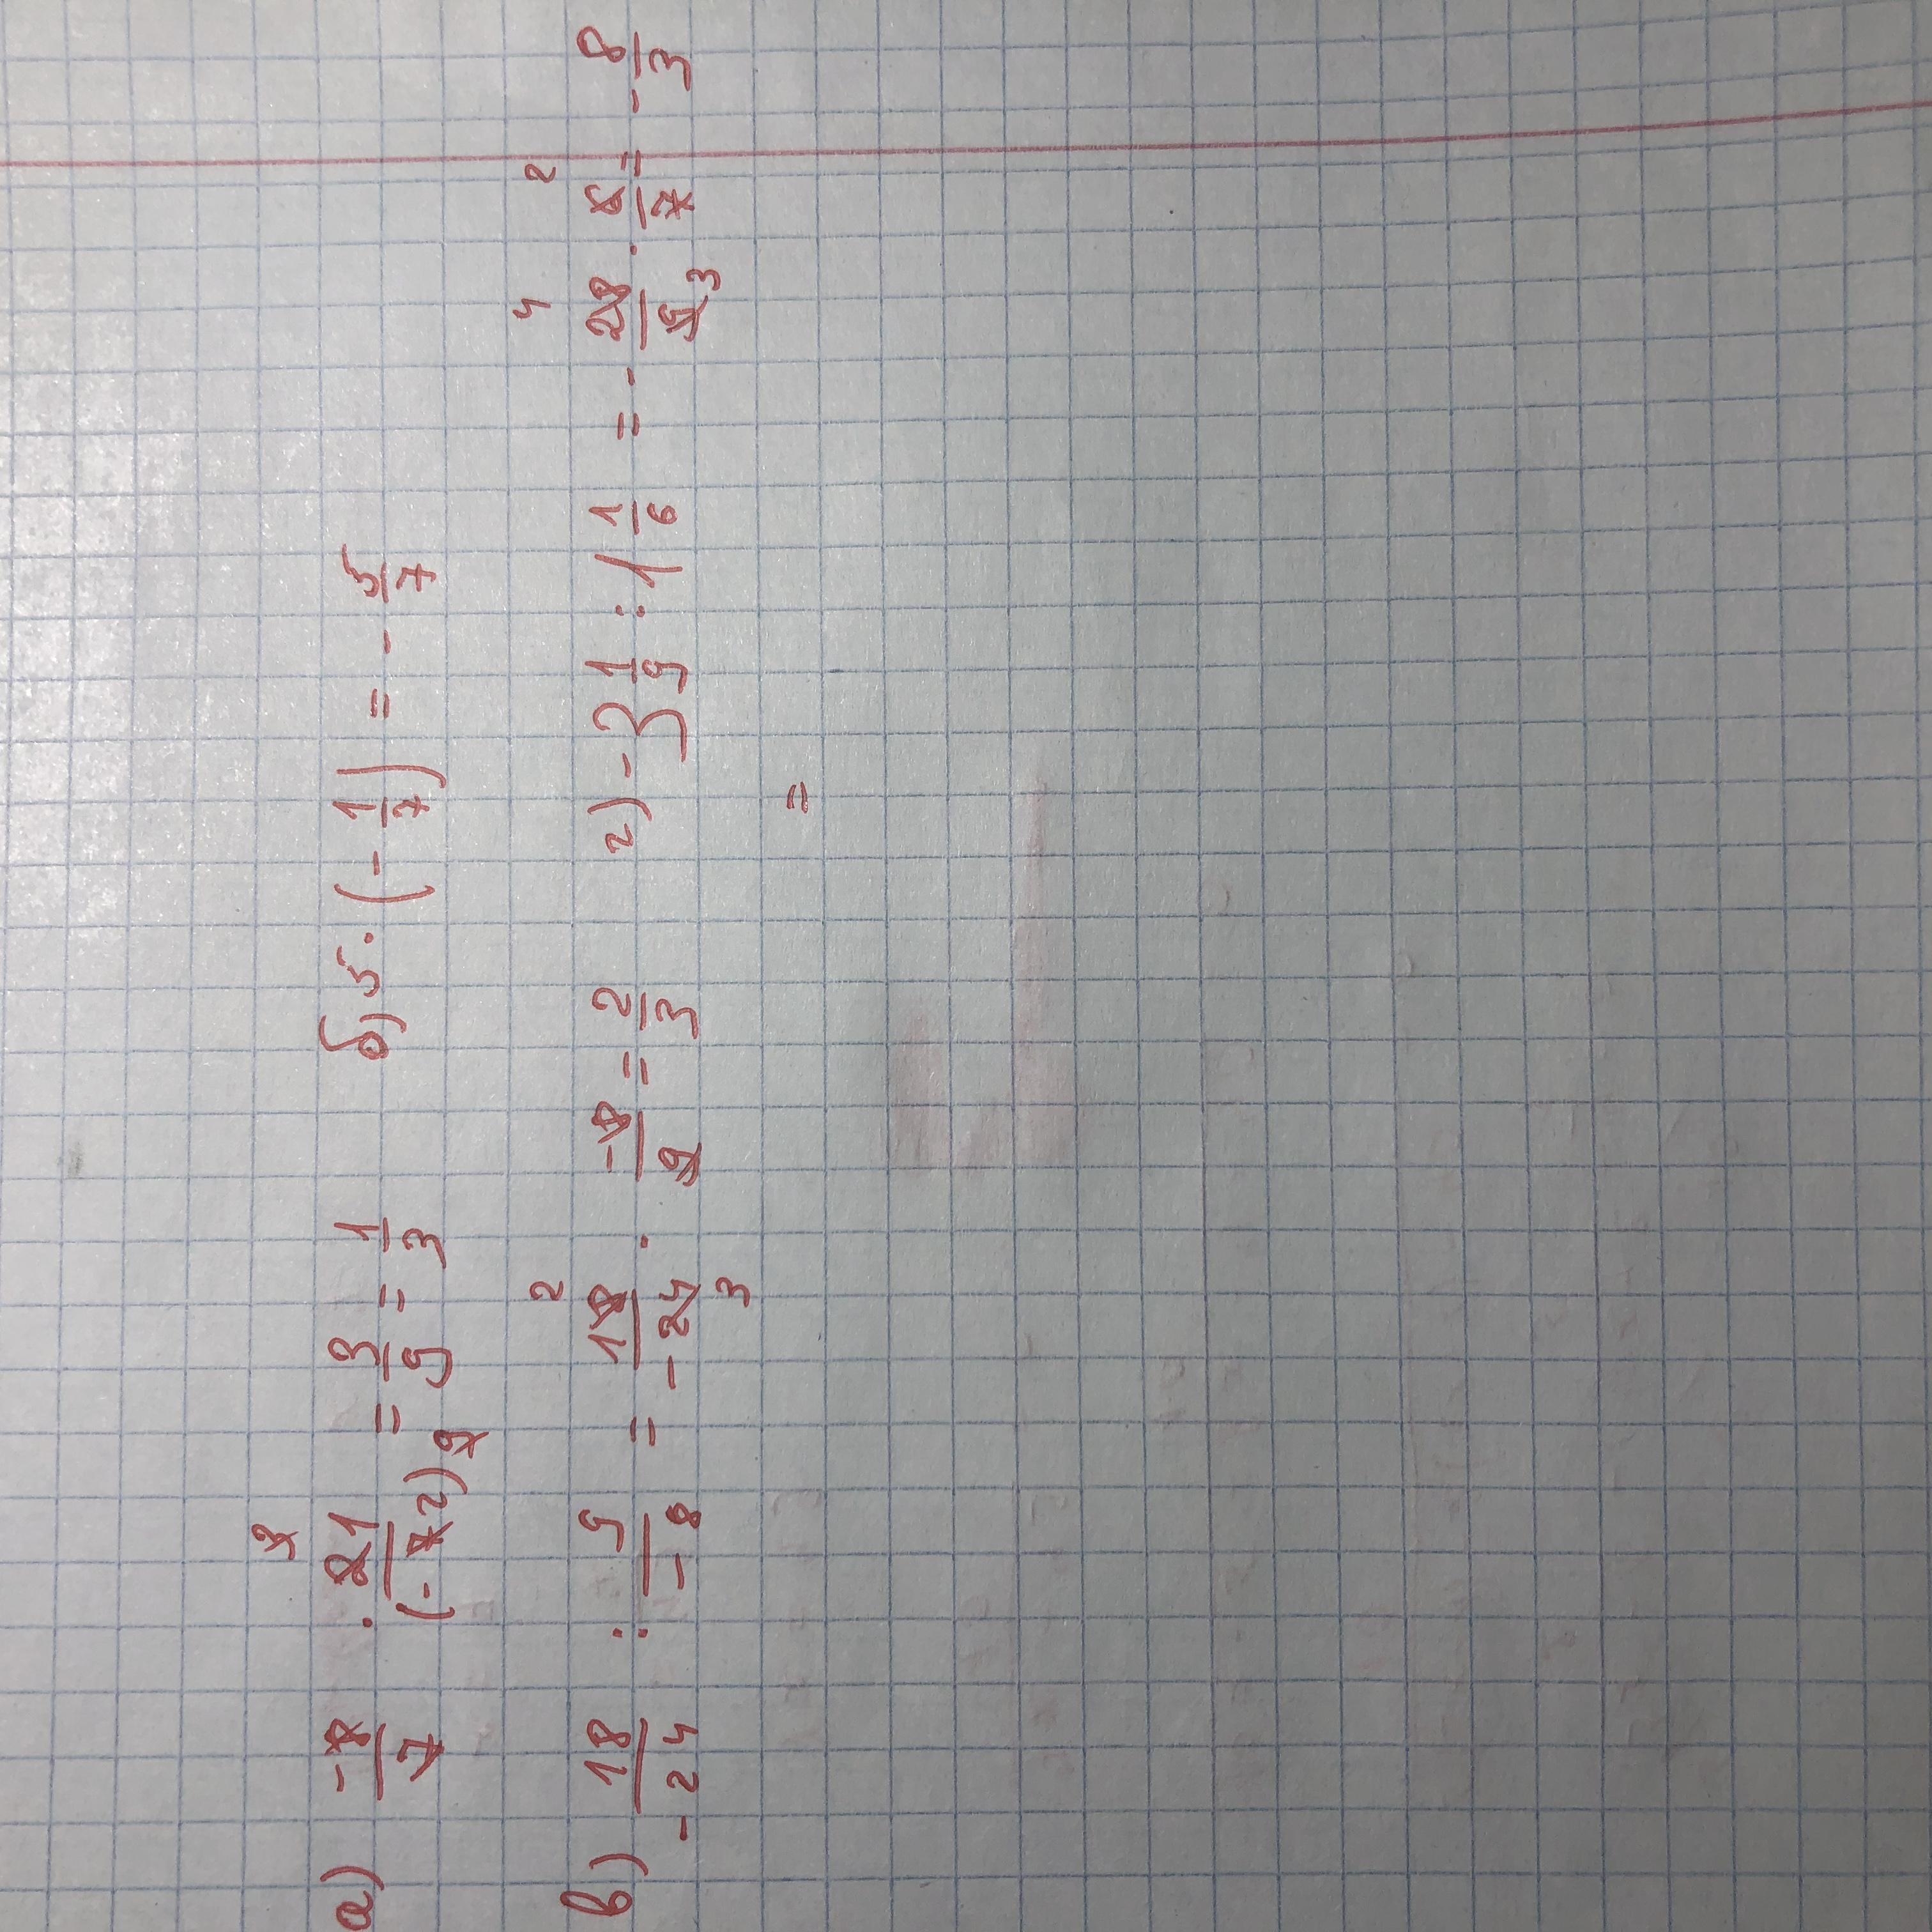 а) -8/7 · 21/(-72) = 3/9 = 1/3 б) 5 · (-1/7) = -5/7
в) 18/-24 : 9/-8 = 18/-24 · -8/9 = 2/3 г) -3 1/9 : 1 1/6 = -28/9 · 6/7 = -8/3
=